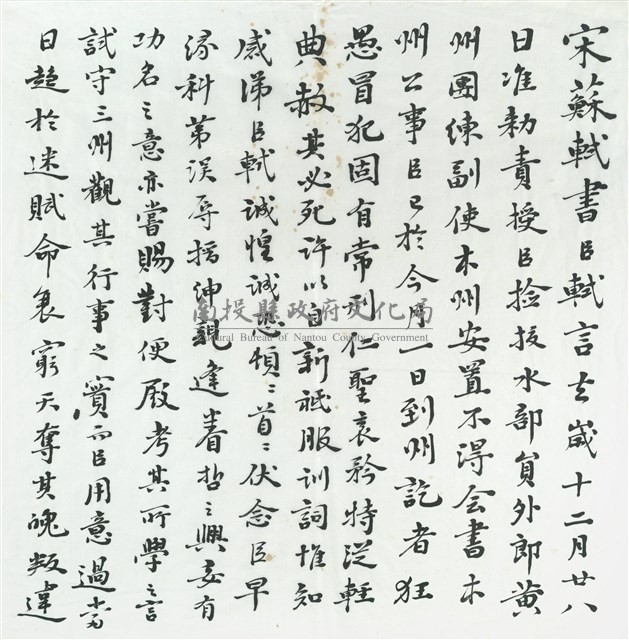 宋蘇軾書臣軾言去歲十二月廿八
日准勅責授臣捡挍水部負外郎黃
州團練副使本州安置不得佥書本
州公事臣已於今月一日到州訖者狂
愚冒犯固有常刑仁聖哀矜特从輕
典赦其必死许以自新祗服训詞惟知
感涕臣軾诚惶诚恐頓頓首首伏念臣早
缘科第误辱搢绅親逢睿哲之興妄有
功名之意亦嘗賜對便殿考其所學之言
試守三州觀其行事之實而臣用意過當
日趋於迷賦命衰窮天奪其魄叛違
南投縣政府文化局
Cultural Bureau of Nantou County Government